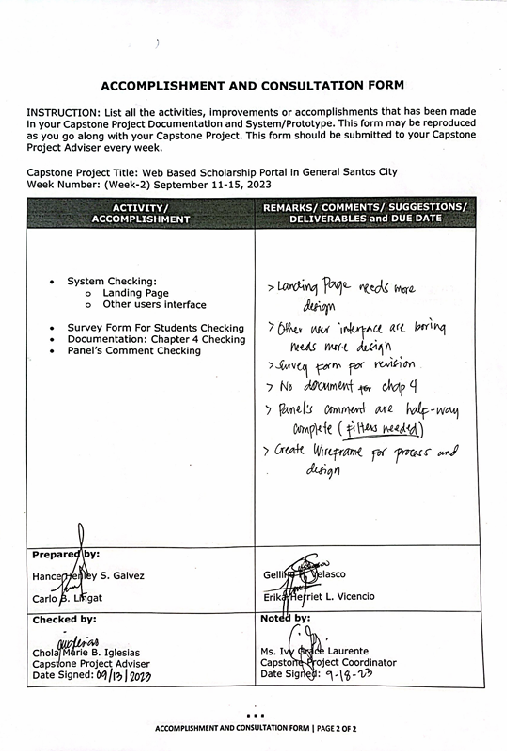 ACCOMPLISHMENT AND CONSULTATION FORM
INSTRUCTION: List all the activities, improvements or accomplishments that has been made
in your Capstone Project Documentation and System/Prototype. This form may be reproduced
as you go along with your Capstone Project. This form should be submitted to your Capstone
Project Adviser every week.
Capstone Project Title: Web Based Scholarship Portal In General Santos City
Week Number: (Week-2) September 11-15, 2023
ACTIVITY/
ACCOMPLISHMENT
REMARKS/ COMMENTS/ SUGGESTIONS/
DELIVERABLES and DUE DATE
• System Checking:
o Landing Page
o Other users interface
• Survey Form For Students Checking
• Documentation: Chapter 4 Checking
• Panel's Comment Checking
> Landing Page needs more
design
> Other user interface are boring
needs more design
> Survey form for revision
> No document for chap 4
> Panel's comment are half-way
complete (filters needed)
> Create Wireframe for process and
design
Prepared by:
Hance S. Galvez
Carlo B.
Velasco
Erika Herriet L. Vicencio
Checked by:
Chola Marie B. Iglesias
Capstone Project Adviser
Date Signed: 09/13/2023
Noted by:
Ms. Ivy Laurente
Capstone Project Coordinator
Date Signed: 9-18-23
ACCOMPLISHMENT AND CONSULTATION FORM | PAGE 2 OF 2